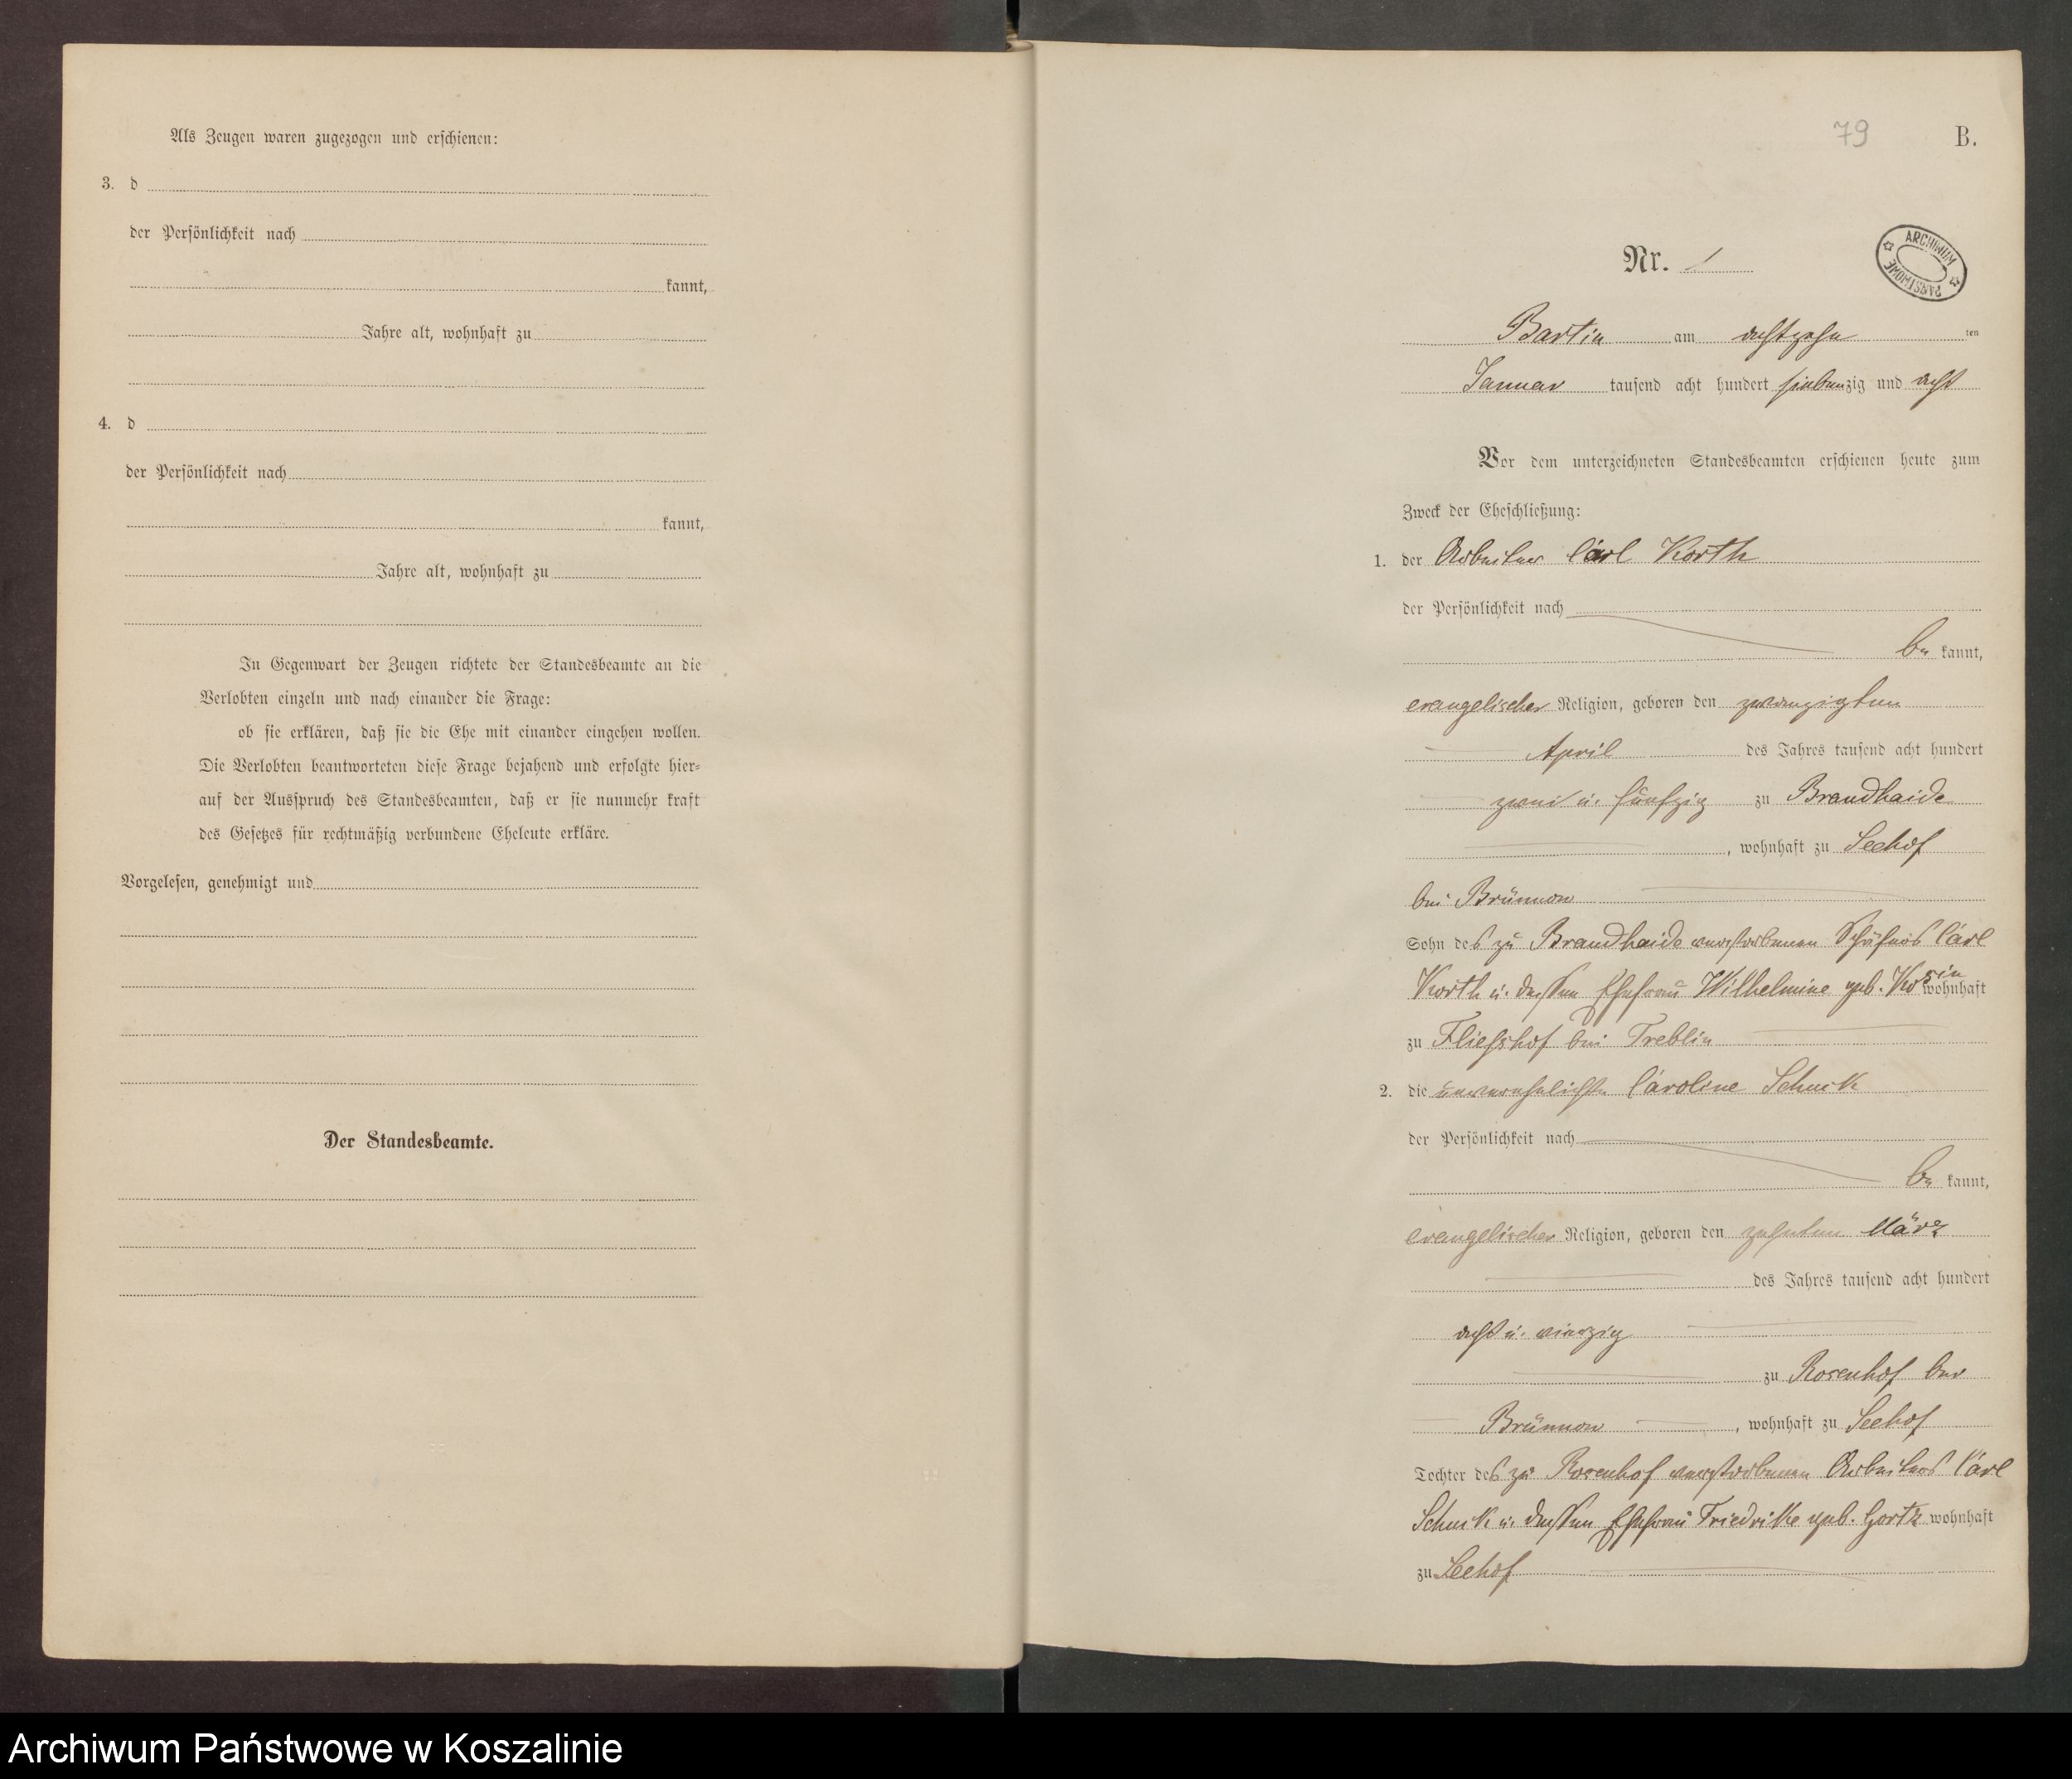 Als Zeugen waren zugezogen und erschienen:
3. d
der Persönlichkeit nach
kannt,
Jahre alt, wohnhaft zu
4. d
der Persönlichkeit nach
kannt,
Jahre alt, wohnhaft zu
In Gegenwart der Zeugen richtete der Standesbeamte an die
Verlobten einzeln und nach einander die Frage:
ob sie erklären, daß sie die Ehe mit einander eingehen wollen.
Die Verlobten beantworteten diese Frage bejahend und erfolgte hier-
auf der Ausspruch des Standesbeamten, daß er sie nunmehr kraft
des Gesetzes für rechtmäßig verbundene Eheleute erkläre.
Vorgelesen, genehmigt und
Der Standesbeamte.
79 B.
ARCHIWUM PAŃSTWOWE
Nr. 1
Bartin am achtzehn ten
Januar tausend acht hundert siebenzig und acht
Vor dem unterzeichneten Standesbeamten erschienen heute zum
Zweck der Eheschließung:
1. der Arbeiter Carl Korth
der Persönlichkeit nach
be kannt,
evangelischer Religion, geboren den zwanzigten
April des Jahres tausend acht hundert
zwei u. fünfzig zu Brandhaide
, wohnhaft zu Seehof
bei Brünnow
Sohn des zu Brandhaide verstorbenen Schäfers Carl
Korth u. dessen Ehefrau Wilhelmine geb. wohnhaft
zu Fliesshof bei Treblin
2. die unverehelichte Caroline Schuck
der Persönlichkeit nach
be kannt,
evangelischer Religion, geboren den zehnten März
des Jahres tausend acht hundert
acht u. vierzig
zu Rosenhof bei
Brünnow , wohnhaft zu Seehof
Tochter des zu Rosenhof verstorbenen Arbeiters Carl
Schuck u. dessen Ehefrau Friedrike geb. wohnhaft
zu Seehof
Archiwum Państwowe w Koszalinie